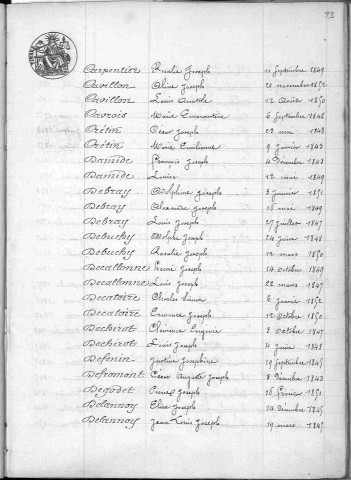 93
Carpentier Rosalie Joseph 11 Septembre 1849
Cavillon Aline Joseph 20 novembre 1852
Cavillon Louis Anatole 12 Août 1850
Cavrois Marie Clémentine 6 Septembre 1846
Crétin César Joseph 23 mai 1848
Crétin Marie Guilaine 9 janvier 1843
Damide François Joseph 4 Décembre 1843
Damide Louise 12 mai 1849
Debray Adolphine Joseph 3 janvier 1851
Debray Alexandre Joseph 16 mai 1849
Debray Louis Joseph 27 juillet 1847
Debuchy Adolphe Joseph 24 juin 1848
Debuchy Rosalie Joseph 12 mars 1850
Decallonne Henri Joseph 14 octobre 1849
Decallonne Louis Joseph 22 mars 1847
Decatoire Charles Simon 6 janvier 1852
Decatoire Ermence Joseph 12 Octobre 1850
Dechirot Clémence Eugénie 3 Octobre 1849
Dechirot Louis Joseph 4 juin 1848
Defenin Justine Joséphine 19 Septembre 1845
Defromont César Auguste Joseph 8 Décembre 1843
Degodet Pierre Joseph 16 février 1851
Delannoy Elise Joseph 24 Décembre 1845
Delannoy Jean Louis Joseph 19 mars 1845